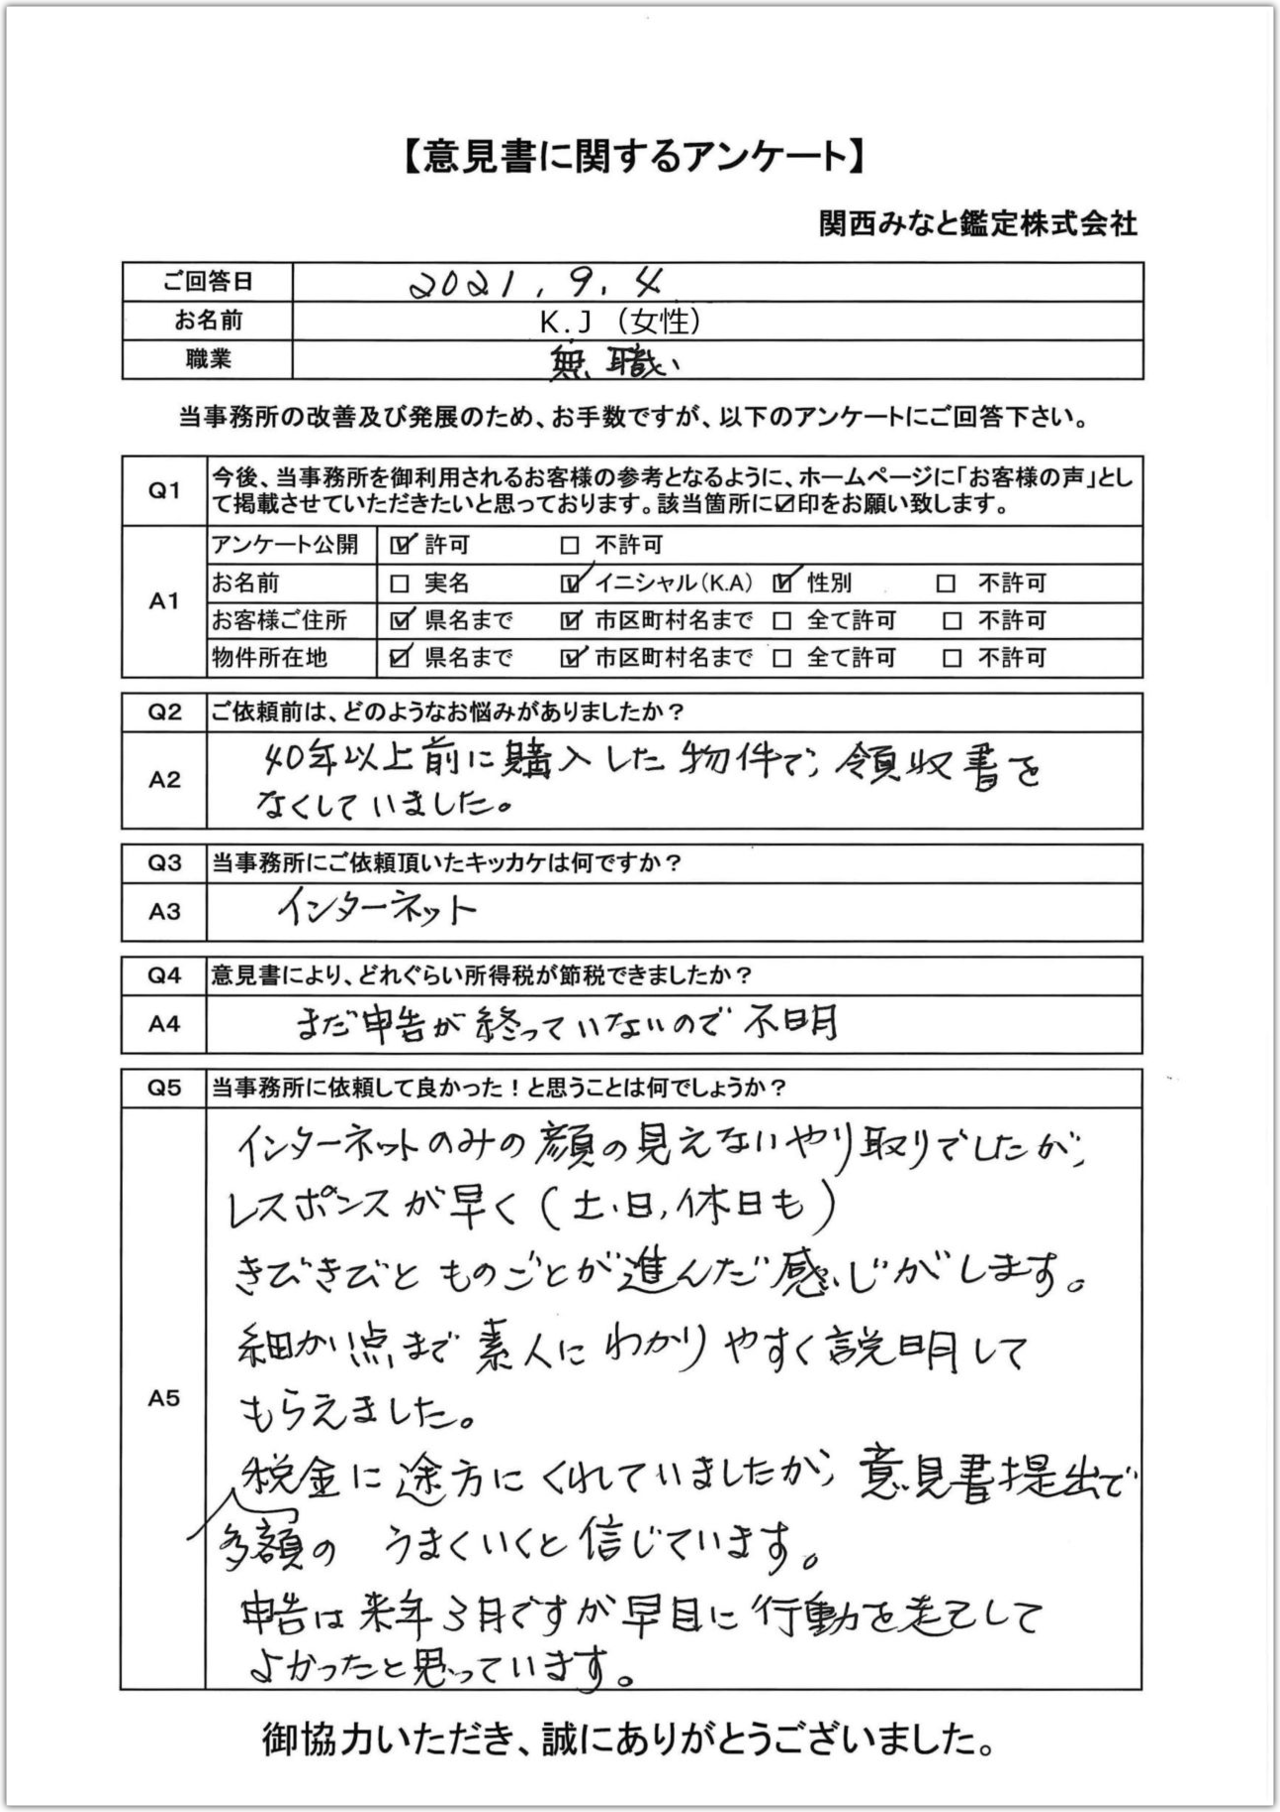 【意見書に関するアンケート】
関西みなと鑑定株式会社
ご回答日 2021.9.4
お名前 K.J (女性)
職業 無職
当事務所の改善及び発展のため、お手数ですが、以下のアンケートにご回答下さい。
Q1 今後、当事務所を御利用されるお客様の参考となるように、ホームページに「お客様の声」とし
て掲載させていただきたいと思っております。該当箇所に☑印をお願い致します。
A1
アンケート公開 ☑ 許可 □ 不許可
お名前 □ 実名 ☑ イニシャル(K.A) ☑ 性別 □ 不許可
お客様ご住所 ☑ 県名まで ☑ 市区町村名まで □ 全て許可 □ 不許可
物件所在地 ☑ 県名まで ☑ 市区町村名まで □ 全て許可 □ 不許可
Q2 ご依頼前は、どのようなお悩みがありましたか？
A2 40年以上前に購入した物件で、領収書を
なくしていました。
Q3 当事務所にご依頼頂いたキッカケは何ですか？
A3 インターネット
Q4 意見書により、どれぐらい所得税が節税できましたか？
A4 まだ申告が終っていないので不明
Q5 当事務所に依頼して良かった！と思うことは何でしょうか？
A5
インターネットのみの顔の見えないやり取りでしたが、
レスポンスが早く(土、日、休日も)
きびきびとものごとが進んだ感じがします。
細かい点まで素人にわかりやすく説明して
もらえました。
税金に途方にくれていましたが、意見書提出で
多額の うまくいくと信じています。
申告は来年3月ですが早目に行動を起こして
よかったと思っています。
御協力いただき、誠にありがとうございました。